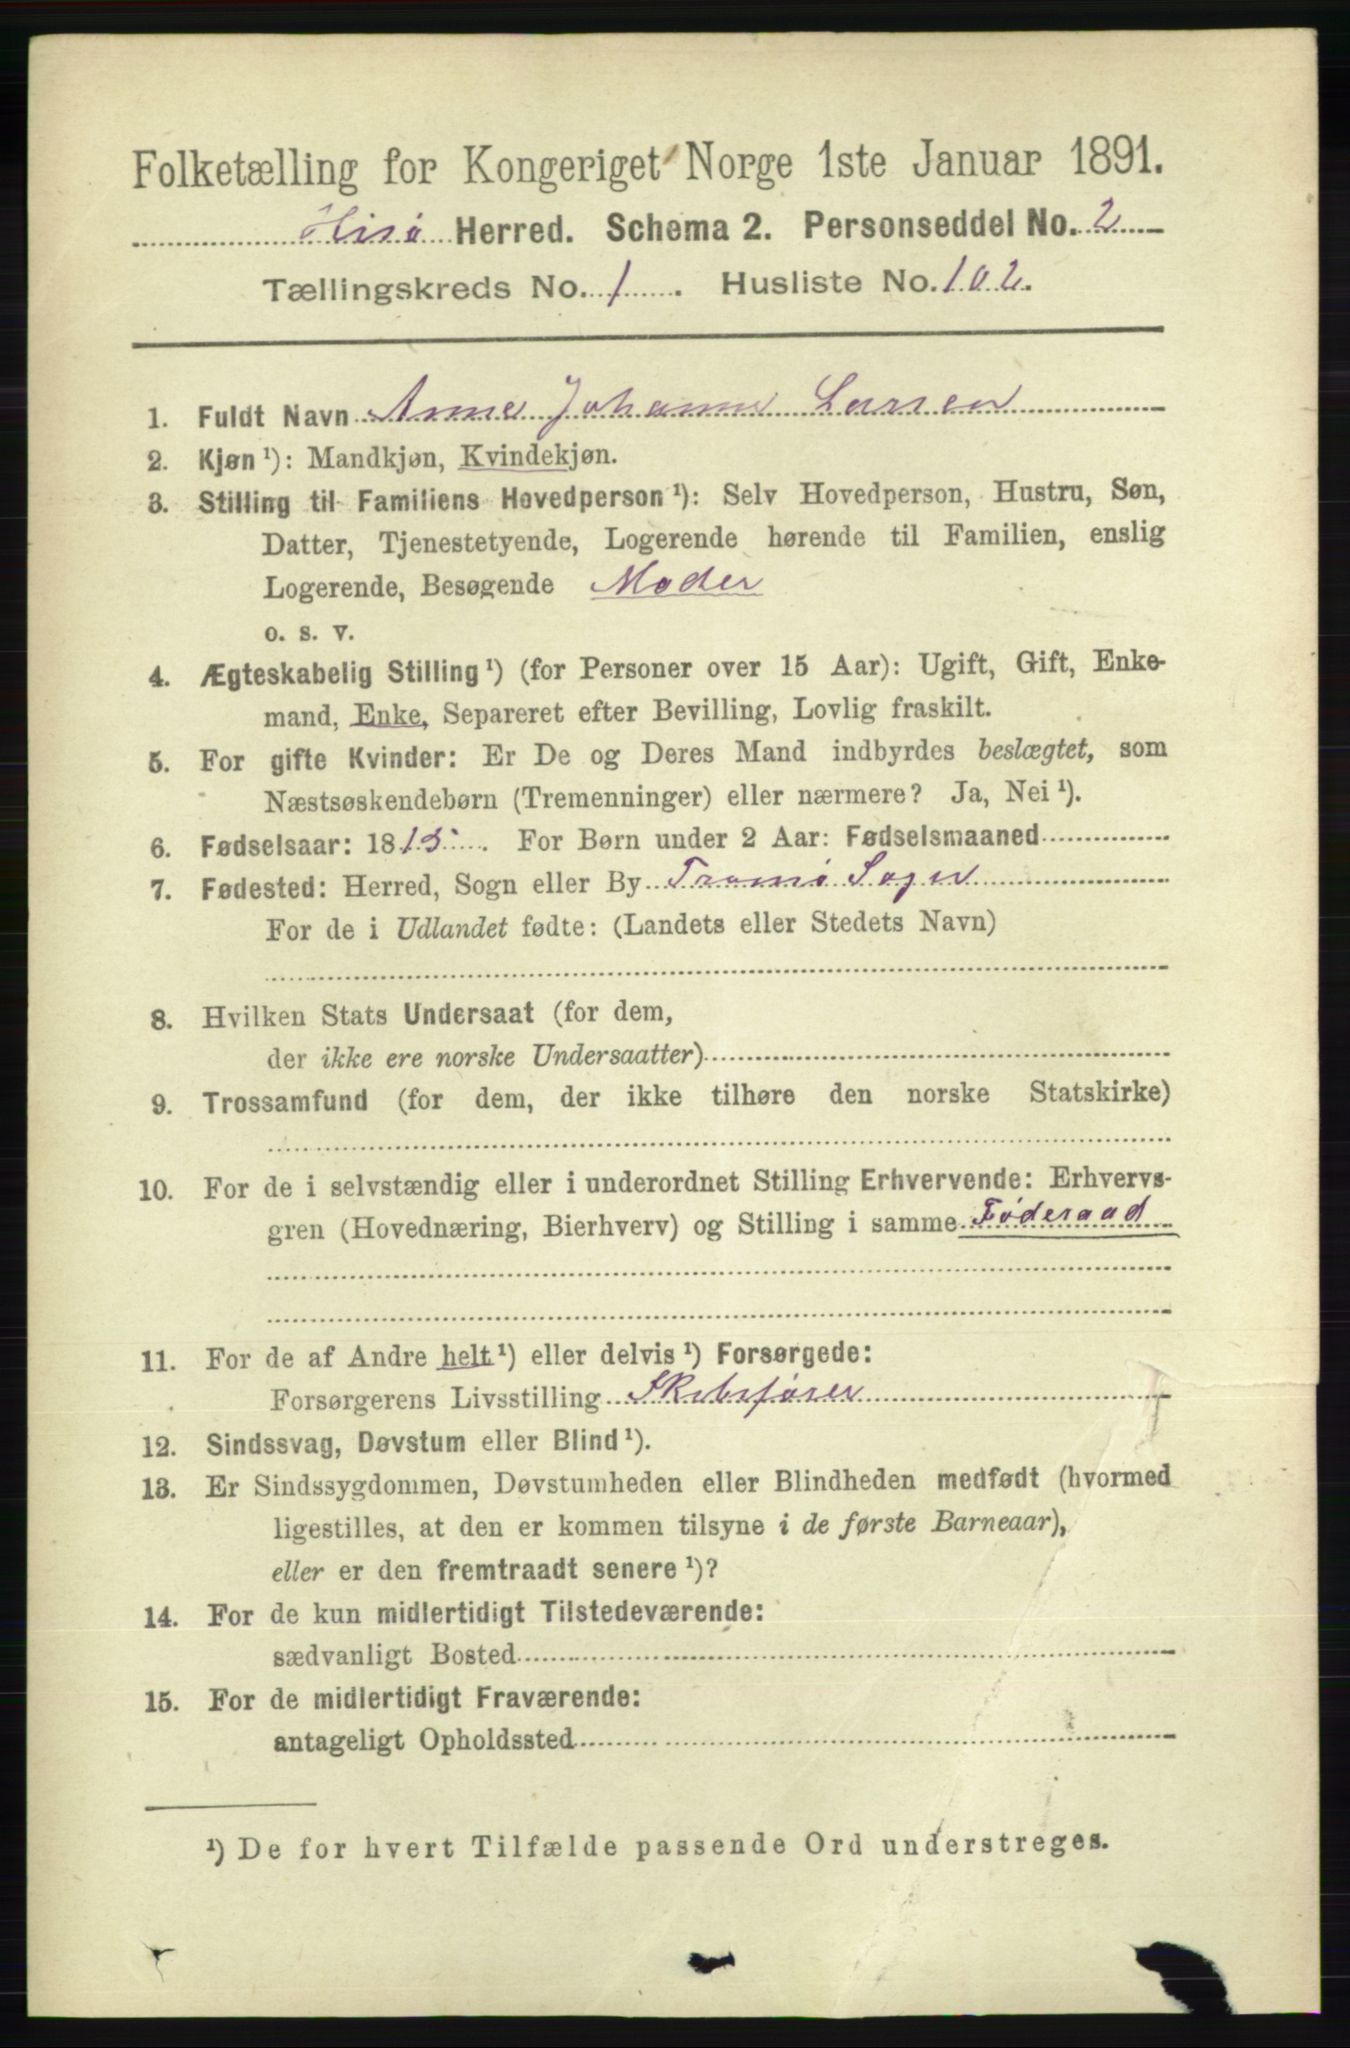 Folketælling for Kongeriget Norge 1ste Januar 1891.
Hisø Herred. Schema 2. Personseddel No. 2
Tællingskreds No. 1. Husliste No. 102.
1. Fuldt Navn Anne Johanne Larsen
2. Kjøn ¹): Mandkjøn, Kvindekjøn.
3. Stilling til Familiens Hovedperson ¹): Selv Hovedperson, Hustru, Søn,
Datter, Tjenestetyende, Logerende hørende til Familien, enslig
Logerende, Besøgende Moder
o. s. v.
4. Ægteskabelig Stilling ¹) (for Personer over 15 Aar): Ugift, Gift, Enke-
mand, Enke, Separeret efter Bevilling, Lovlig fraskilt.
5. For gifte Kvinder: Er De og Deres Mand indbyrdes beslægtet, som
Næstsøskendebørn (Tremenninger) eller nærmere? Ja, Nei ¹).
6. Fødselsaar: 1815. For Børn under 2 Aar: Fødselsmaaned
7. Fødested: Herred, Sogn eller By Tromø Sogn
For de i Udlandet fødte: (Landets eller Stedets Navn)
8. Hvilken Stats Undersaat (for dem,
der ikke ere norske Undersaatter)
9. Trossamfund (for dem, der ikke tilhøre den norske Statskirke)
10. For de i selvstændig eller i underordnet Stilling Erhvervende: Erhvervs-
gren (Hovednæring, Bierhverv) og Stilling i samme Føderaad
11. For de af Andre helt ¹) eller delvis ¹) Forsørgede:
Forsørgerens Livsstilling Skibsfører
12. Sindssvag, Døvstum eller Blind ¹).
13. Er Sindssygdommen, Døvstumheden eller Blindheden medfødt (hvormed
ligestilles, at den er kommen tilsyne i de første Barneaar),
eller er den fremtraadt senere ¹)?
14. For de kun midlertidigt Tilstedeværende:
sædvanligt Bosted
15. For de midlertidigt Fraværende:
antageligt Opholdssted
¹) De for hvert Tilfælde passende Ord understreges.